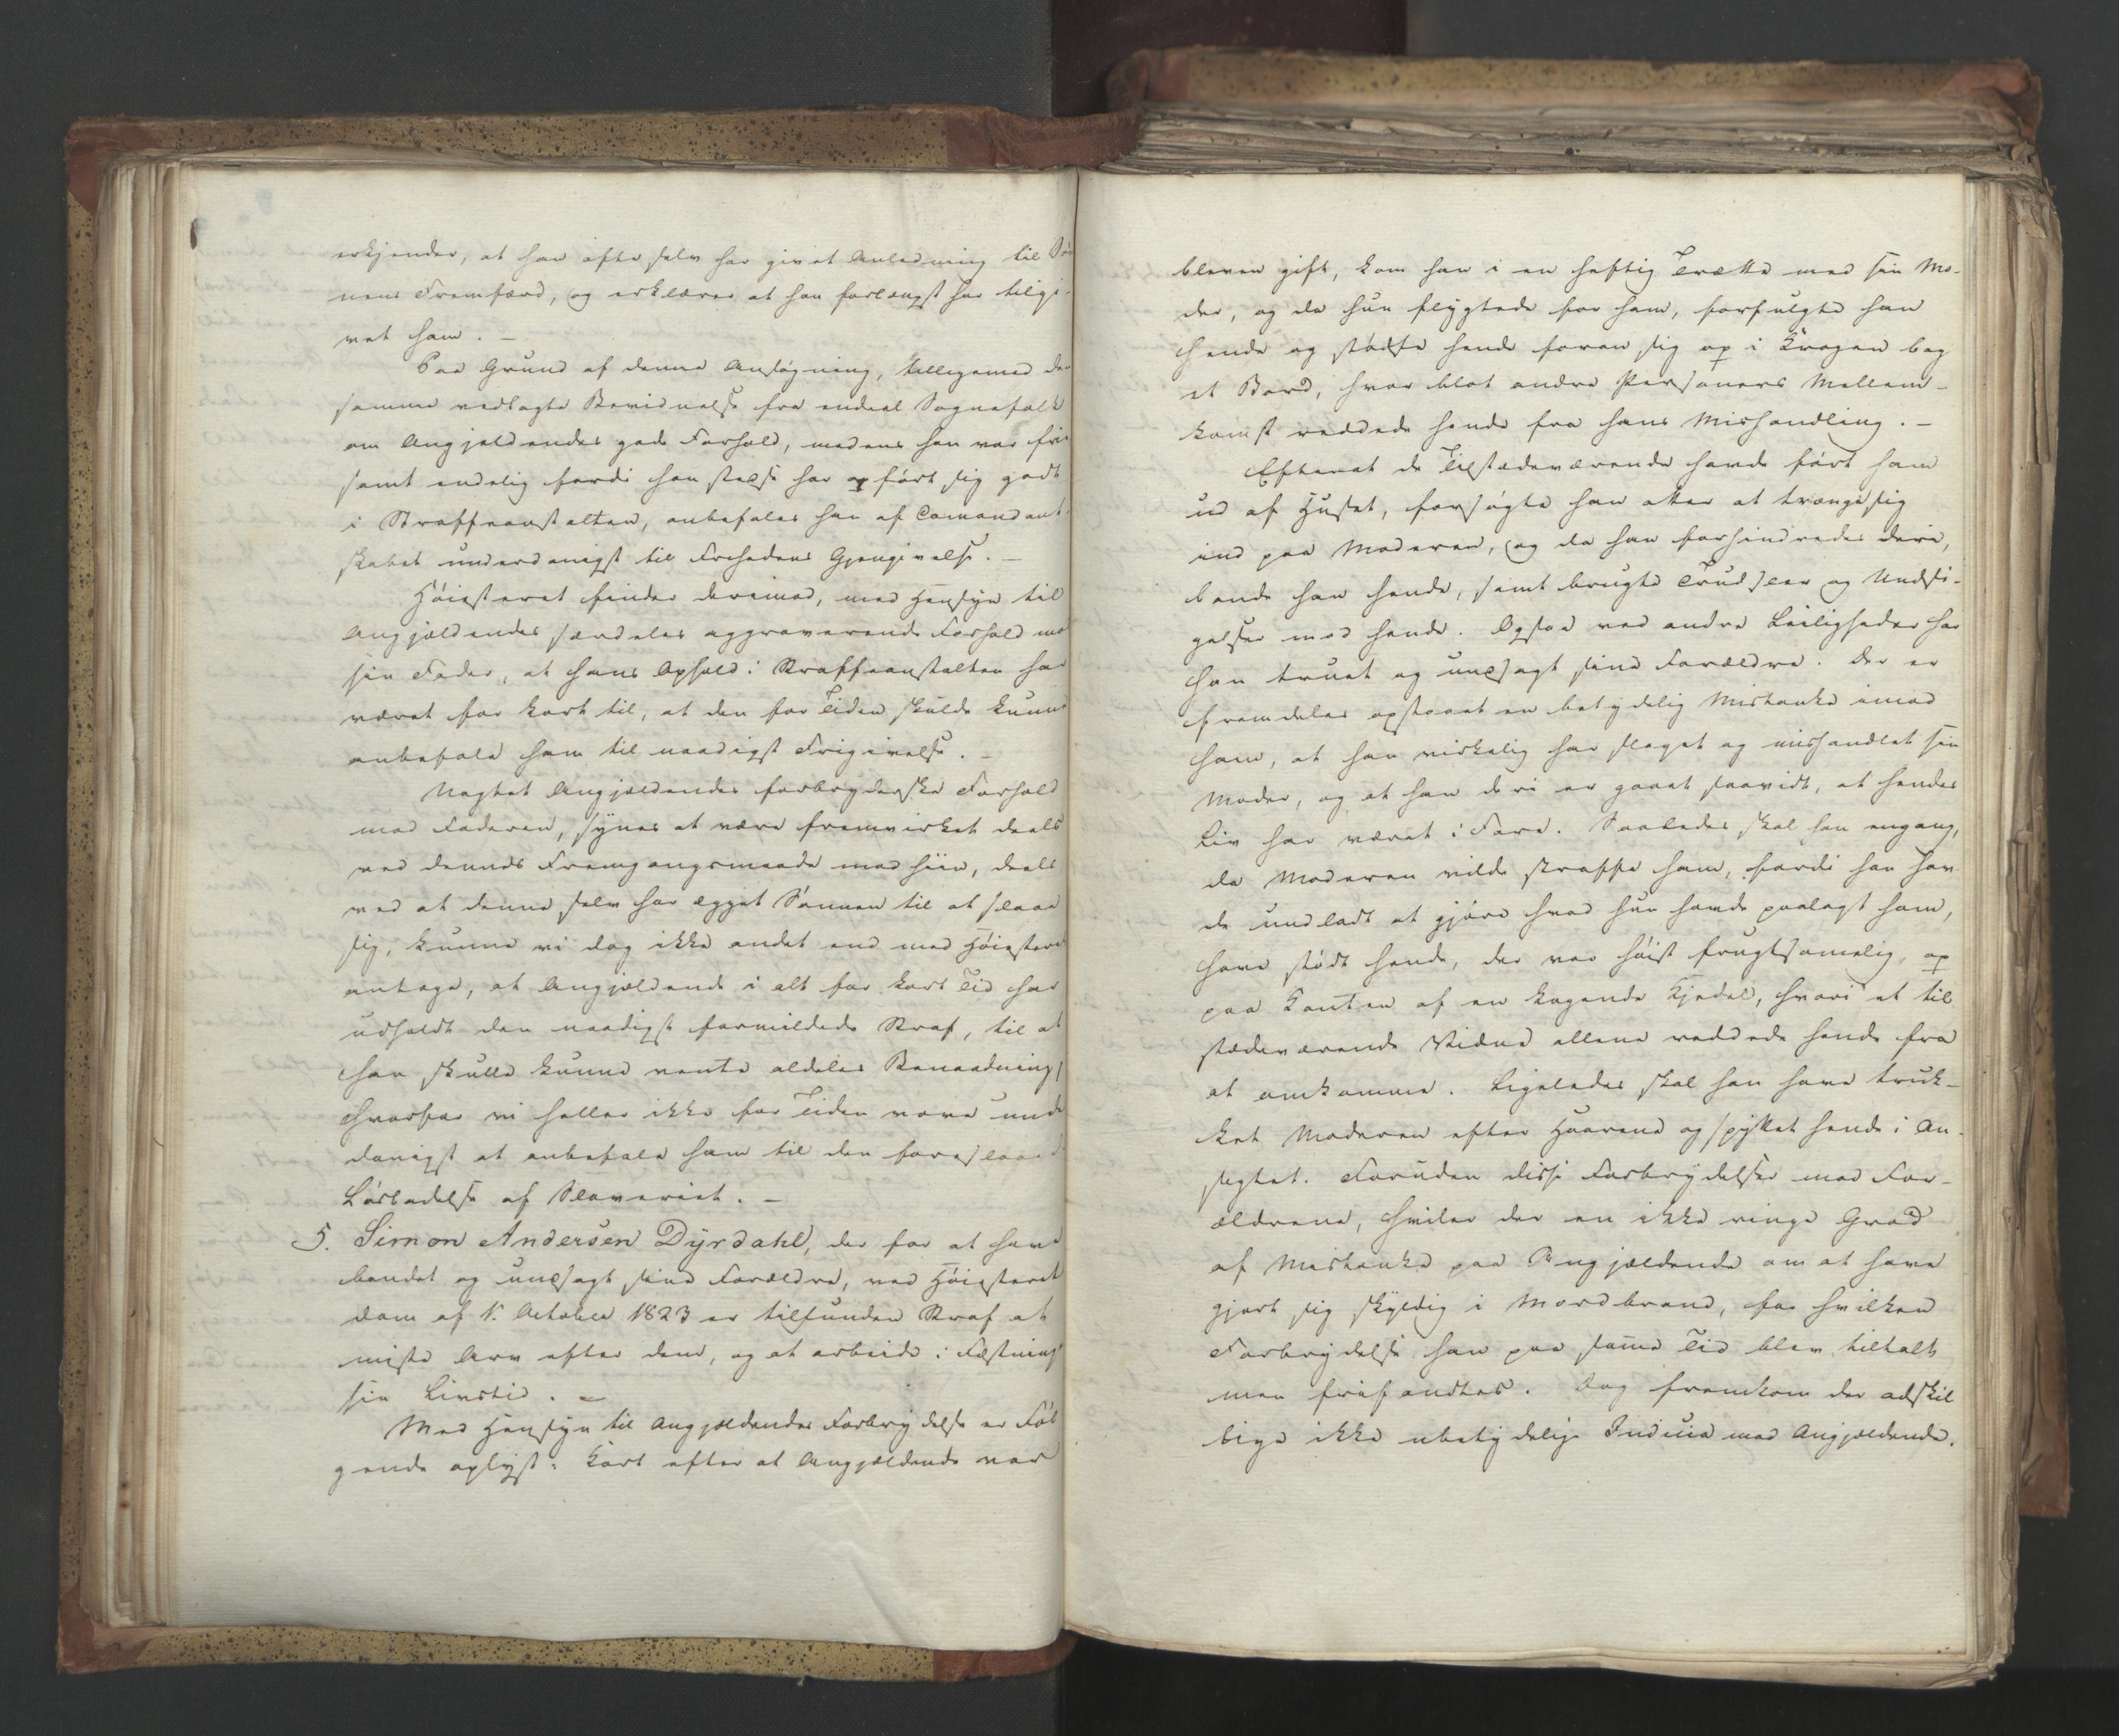 erkjender, at han ofte selv har givet Anledning til Søn-
nens Fremfærd, og erklærer at han forlængst har tilgi-
vet ham. –
Paa Grund af denne Ansøgning, tilligemed den
samme vedlagte Bevidnelse fra endeel Sognefolk
om Angjeldendes gode Forhold, medens han var fri
samt endelig fordi han stedse har opført sig godt
i Straffeanstalten, anbefales han af Comandant-
skabet underdanigst til Frihedens Gjengivelse. –
Høiesteret finder derimod, med Hensyn til
Angjældendes særdeles aggraverende Forhold mod
sin Fader, at hans Ophold i Straffeanstalten har
været for kort til, at den for Tiden skulde kunne
anbefale ham til naadigst Frigivelse. –
Uagtet Angjældendes forbryderske Forhold
mod Faderen, synes at være fremvirket deels
ved dennes Fremgangsmaade mod hiin, deels
ved at denne selv har ægget Sønnen til at slaae
sig, kunne vi dog ikke andet end med Høiesteret
antage, at Angjældende i alt for kort Tid har
udholdt den naadigst formildede Straf, til at
han skulle kunne vente aldeles Benaadning,
hvorfor vi heller ikke for Tiden vove under-
danigst at anbefale ham til den foreslaaede
Løsladelse af Slaveriet. –
5. Simon Andersen Dyrdahl, der for at have
bandet og undsagt sine Forældre, ved Høiesterets
Dom af 1. October 1823 er tilfunden Straf at
miste Arv efter dem, og at arbeide i Fæstning
sin Livstid. –
Med Hensyn til Angjældendes Forbrydelse er Føl-
gende oplyst: Kort efter at Angjældende var
bleven gift, kom han i en heftig Trætte med sin Mo-
der, og da hun flygtede for ham, forfulgte han
hende og stødte hende foran sig op i Krogen bag
et Bord, hvor blot andre Personers Mellem-
komst reddede hende fra hans Mishandling. –
Efterat de Tilstædeværende havde ført ham
ud af Huset, forsøgte han atter at trænge sig
ind paa Moderen, og da han forhindredes deri,
bande han hende, samt brugte Trudsler og Undsi-
gelser mod hende. Ogsaa ved andre Leiligheder har
han truet og undsagt sine Forældre. Der er
fremdeles opstaaet en betydelig Mistanke imod
ham, at han virkelig har slaget og mishandlet sin
Moder, og at han deri er gaaet saavidt, at hendes
Liv har været i Fare. Saaledes skal han engang,
da Moderen vilde straffe ham, fordi han hav-
de undladt at gjøre hvad hun havde paalagt ham,
have stødt hende, der var høist frugtsomelig, op
paa Kanten af en kogende Kjedel, hvori et til-
stædeværende Vidne allene reddede hende fra
at omkomme. Ligeledes skal han have truk-
ket Moderen efter Haarene og spyttet hende i An-
sigtet. Foruden disse Forbrydelser mod For-
ældrene, hviler der en ikke ringe Grad
af Mistanke paa Angjældende om at have
gjort sig skyldig i Mordbrand, for hvilken
Forbrydelse han paa samme Tid blev tiltalt
men frifandtes. Dog fremkom der adskil-
lige ikke ubetydelige Indicia mod Angjældende.